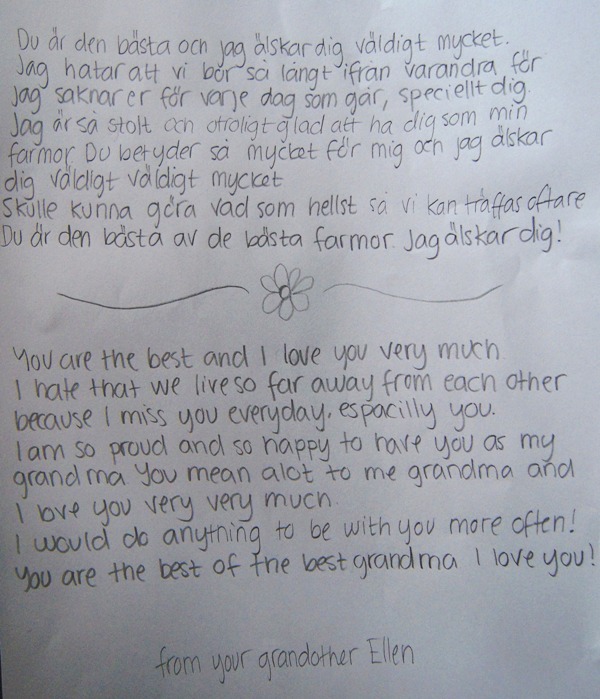 Du är den bästa och jag älskar dig väldigt mycket.
Jag hatar att vi bor så långt ifrån varandra för
jag saknar er för varje dag som går, speciellt dig.
Jag är så stolt och otroligt glad att ha dig som min
farmor. Du betyder så mycket för mig och jag älskar
dig väldigt väldigt mycket
Skulle kunna göra vad som hellst så vi kan träffas oftare
Du är den bästa av de bästa farmor. Jag älskar dig!
You are the best and I love you very much.
I hate that we live so far away from each other
because I miss you everyday, espacilly you.
I am so proud and so happy to have you as my
grandma You mean alot to me grandma and
I love you very very much.
I would do anything to be with you more often!
You are the best of the best grandma I love you!
from your grandother Ellen